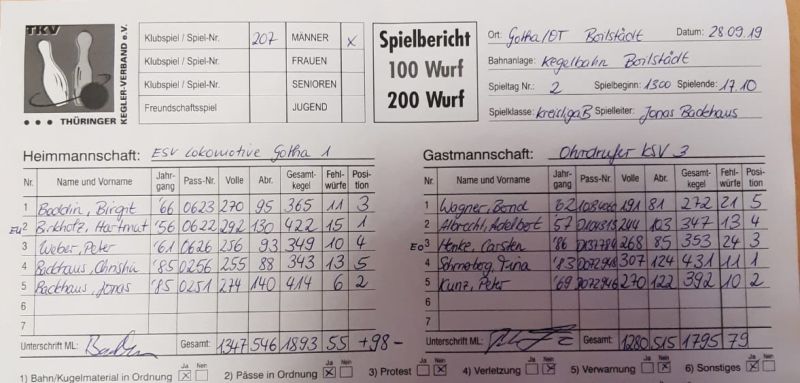 TKV
THÜRINGER
KEGLER-VERBAND e.V.
Klubspiel / Spiel-Nr. 207 MÄNNER x
Klubspiel / Spiel-Nr. FRAUEN
Klubspiel / Spiel-Nr. SENIOREN
Freundschaftsspiel JUGEND
Spielbericht
100 Wurf
200 Wurf
Ort: Gotha/OT Boilstädt Datum: 28.09.19
Bahnanlage: Kegelbahn Boilstädt
Spieltag Nr.: 2 Spielbeginn: 1300 Spielende: 17.10
Spielklasse: Kreisliga B Spielleiter: Jonas Backhaus
Heimmannschaft: ESV Lokomotive Gotha 1
Nr. Name und Vorname Jahr-gang Pass-Nr. Volle Abr. Gesamt-kegel Fehl-würfe Posi-tion
1 Bocklin, Birgit '66 0623 270 95 365 11 3
2 Birkholz, Hartmut '56 0622 292 130 422 15 1
3 Weber, Peter '61 0626 256 93 349 10 4
4 Backhaus, Christin '85 0256 255 88 343 13 5
5 Backhaus, Jonas '85 0251 274 140 414 6 2
6
7
Unterschrift ML: Gesamt: 1347 546 1893 55 +98 -
Gastmannschaft: Ohrdrufer KSV 3
Nr. Name und Vorname Jahr-gang Pass-Nr. Volle Abr. Gesamt-kegel Fehl-würfe Posi-tion
1 Wagner, Bernd '62 191 81 272 21 5
2 Albrecht, Adelbert '57 244 103 347 13 4
3 Henke, Carsten '86 268 85 353 24 3
4 Tina '83 307 124 431 11 1
5 Kunz, Peter '69 270 122 392 10 2
6
7
Unterschrift ML: Gesamt: 1280 515 1795 79
1) Bahn/Kugelmaterial in Ordnung Ja Nein 2) Pässe in Ordnung Ja Nein 3) Protest Ja Nein 4) Verletzung Ja Nein 5) Verwarnung Ja Nein 6) Sonstiges Ja Nein